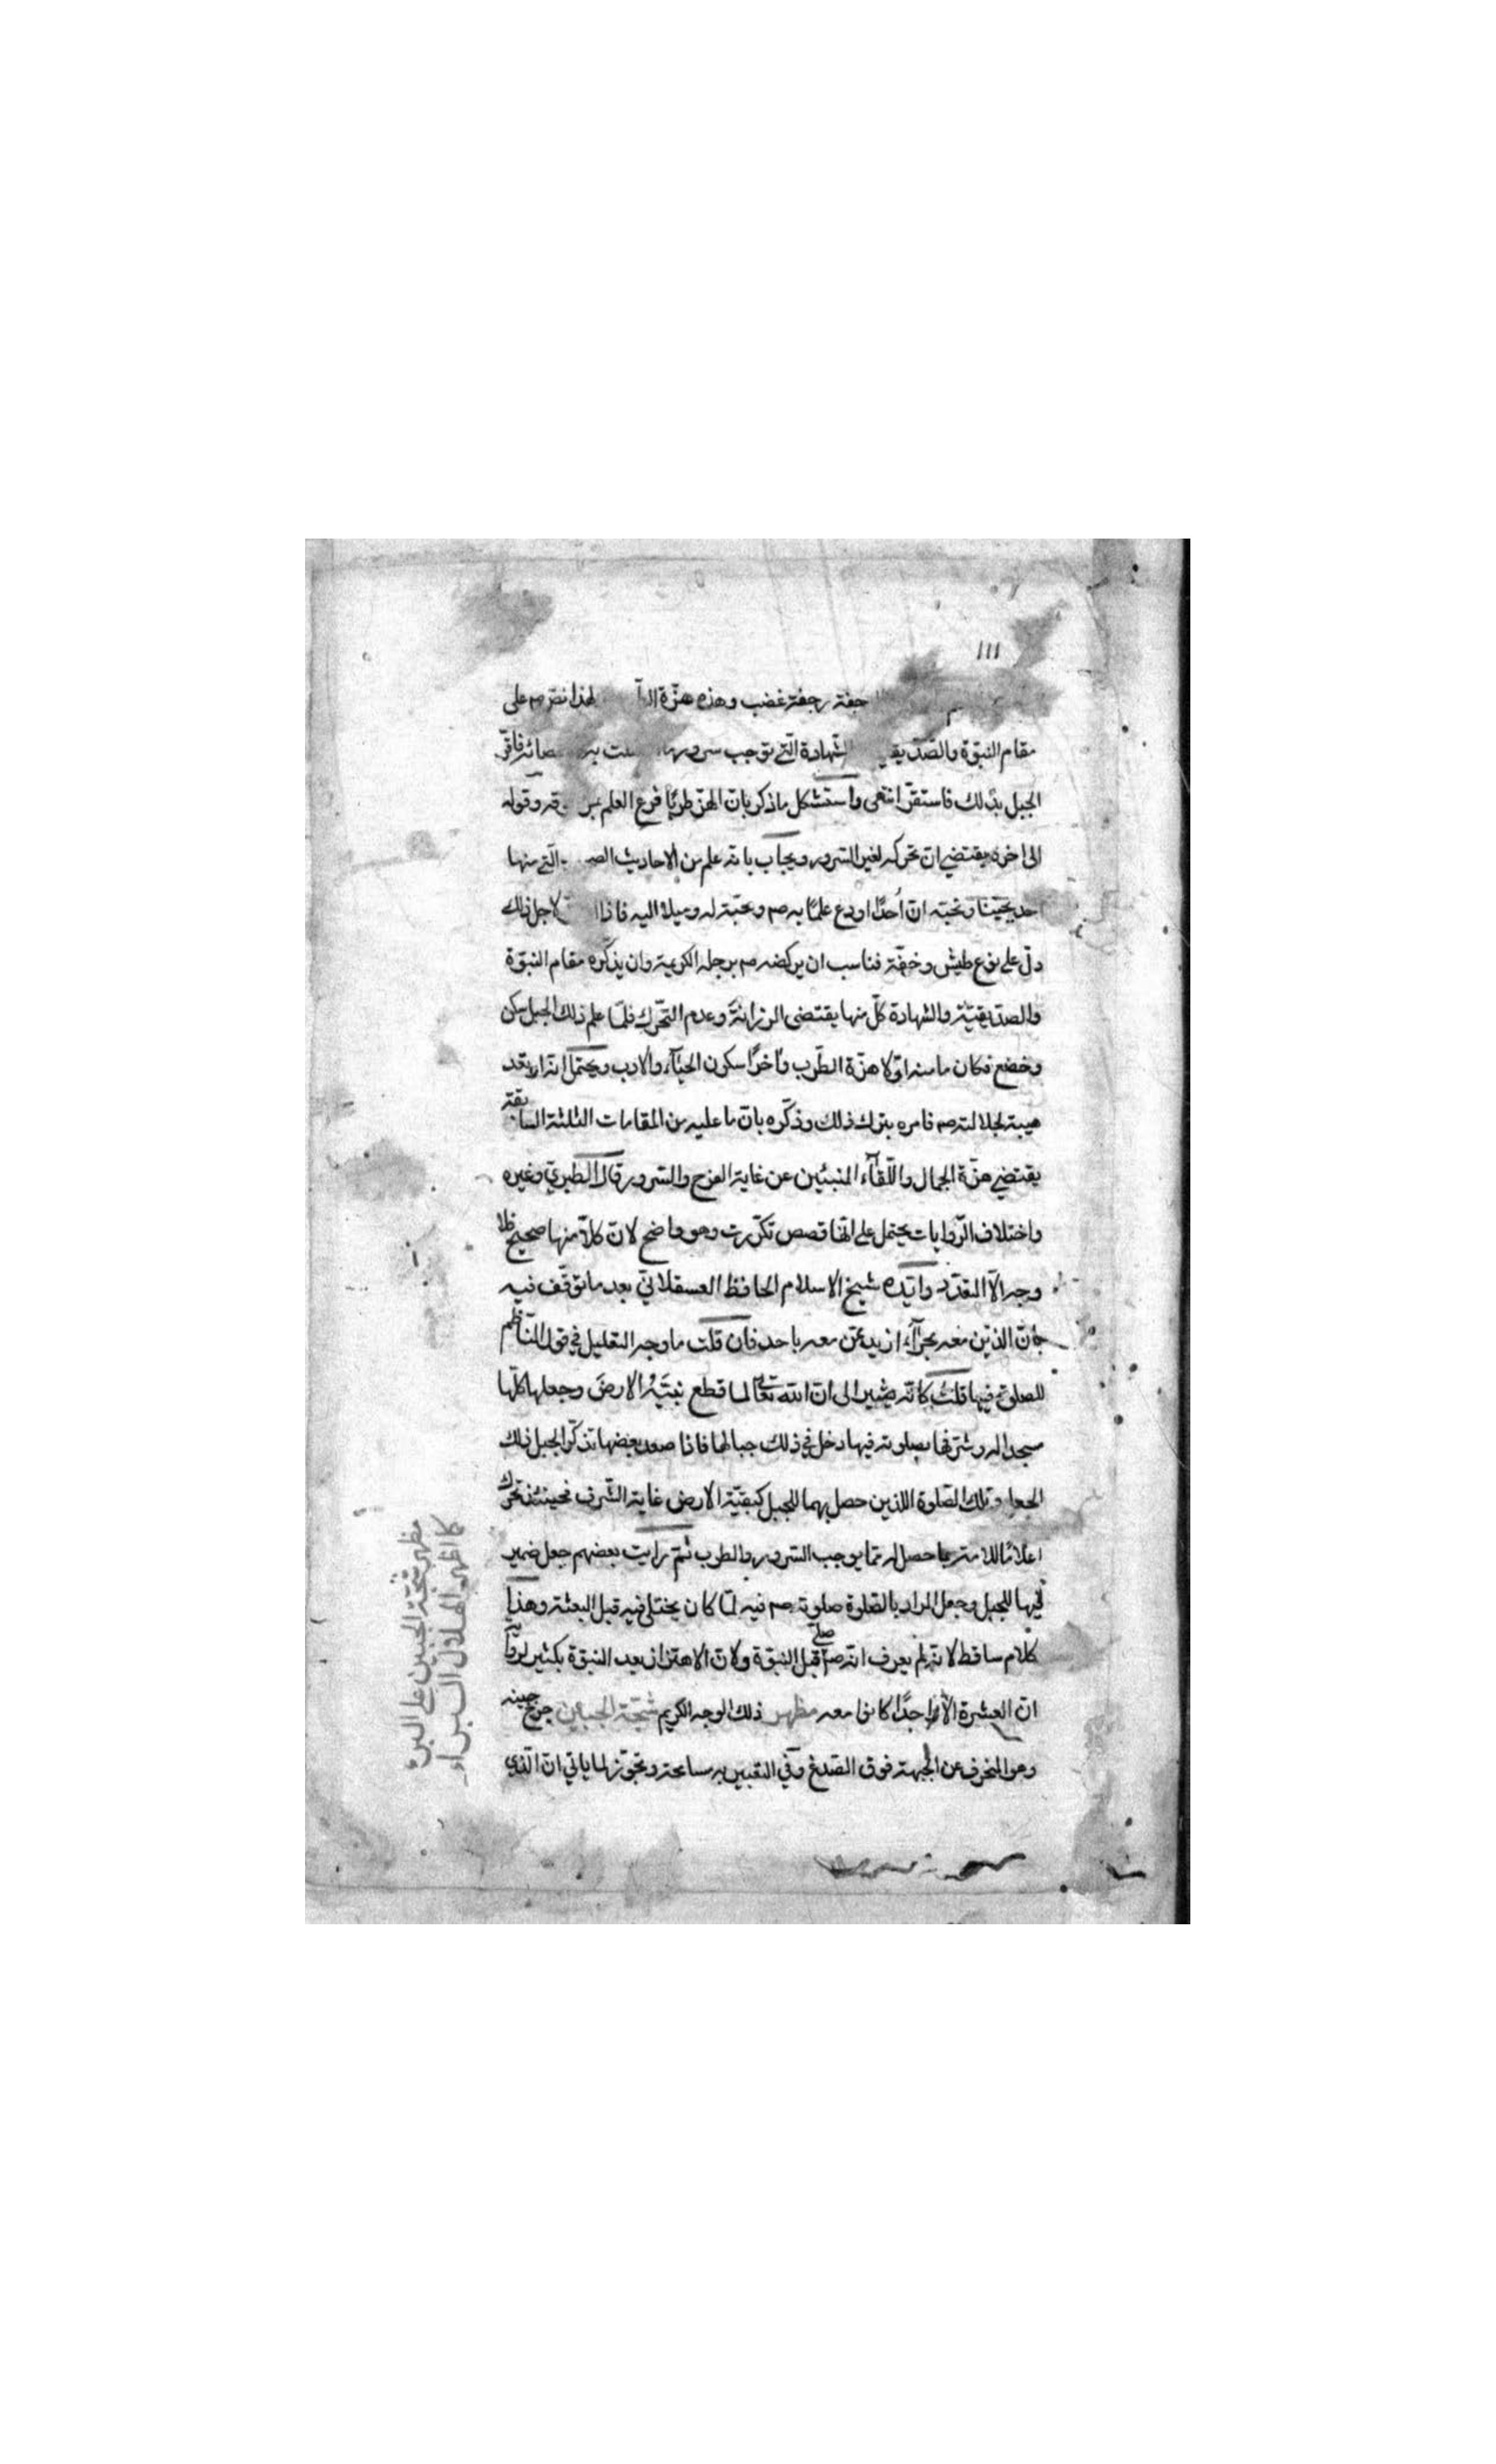 ١١١
جفة رجفة غضب وهذه هزة لهذا نص صم على
مقام النبوة والصديقية الشهادة الّتي توجب سرور
الجبل بذلك فاستقرّ انتهى واستشكل ما ذكر بانّ الهزّ طربًا فرع العلم وقوله
الى اخره يقتضي ان تحركه لغير السرور ويجاب بانه علم من الاحاديث الّتي منها
احد يحبّنا ونحبّه انّ أحدًا اودع علمًا به صم ومحبّة له وميلا اليه فاذا لاجل ذلك
دلّ على نوع طيش وخفّة فناسب ان يركضه صم برجله الكريمة وان يذكّره مقام النبوّة
والصدّيقيّة والشهادة كلّ منها يقتضى الرزانة وعدم التحّرك فلمّا علم ذلك الجبل سكن
وخضع فكان ما منه اوّلا هزّة الطّرب وآخرًا سكون الحيآء والادب ويحتمل انه ارتعد
هيبة لجلالته صم فامره بترك ذلك وذكّره بانّ ما عليه من المقامات الثلثة السابقة
يقتضي هزّة الجمال واللّقآء المنبئين عن غاية الفرح والسرور قال الطبريّ وغيره
واختلاف الرّوايات يحتمل على انّها قصص تكرّرت وهو واضح لانّ كلاّ منها صحيح فلا
وجه الاّ التعدّد وايّده شيخ الاسلام الحافظ العسقلانيّ بعد ما توقّف فيه
بانّ الذين معه بحرآء ازيد ممّن معه باحد فان قلت ما وجه التعليل في قول النّاظم
للصلوة فيها قلت كانّه يشير الى انّ الله تعالى لما قطع بقيّة الارض وجعلها كلّها
مسجدا له وشرّفها بصلوته فيها دخل في ذلك جبالها فاذا صعد بعضها تذكّر الجبل ذلك
الجعل وتلك الصّلوة اللذين حصل بهما للجبل كبقيّة الارض غاية الشّرف فحينئذ تحرّك
اعلامًا للامّة بما حصل له ممّا يوجب السّرور والطرب ثمّ رايت بعضهم جعل ضمير
فيها للجبل وجعل المراد بالصّلوة صلوته صم فيه لمّا كان يختلى فيه قبل البعثة وهذا
كلام ساقط لانه لم يعرف انّه صم صلّى قبل النبوّة ولانّ الاهتزاز بعد النبوّة بكثير لرواية
انّ العشرة الاّ واحدًا كانوا معه مظهر ذلك الوجه الكريم شجّة الجبين جرح جبينه
وهو المنحرف عن الجبهة فوق الصدغ وفي التعبير به مسامحة وتجوّز لما ياتي انّ الّذي
مظهر شجّة الجبين على البرء
كما اظهر الهلال البراء